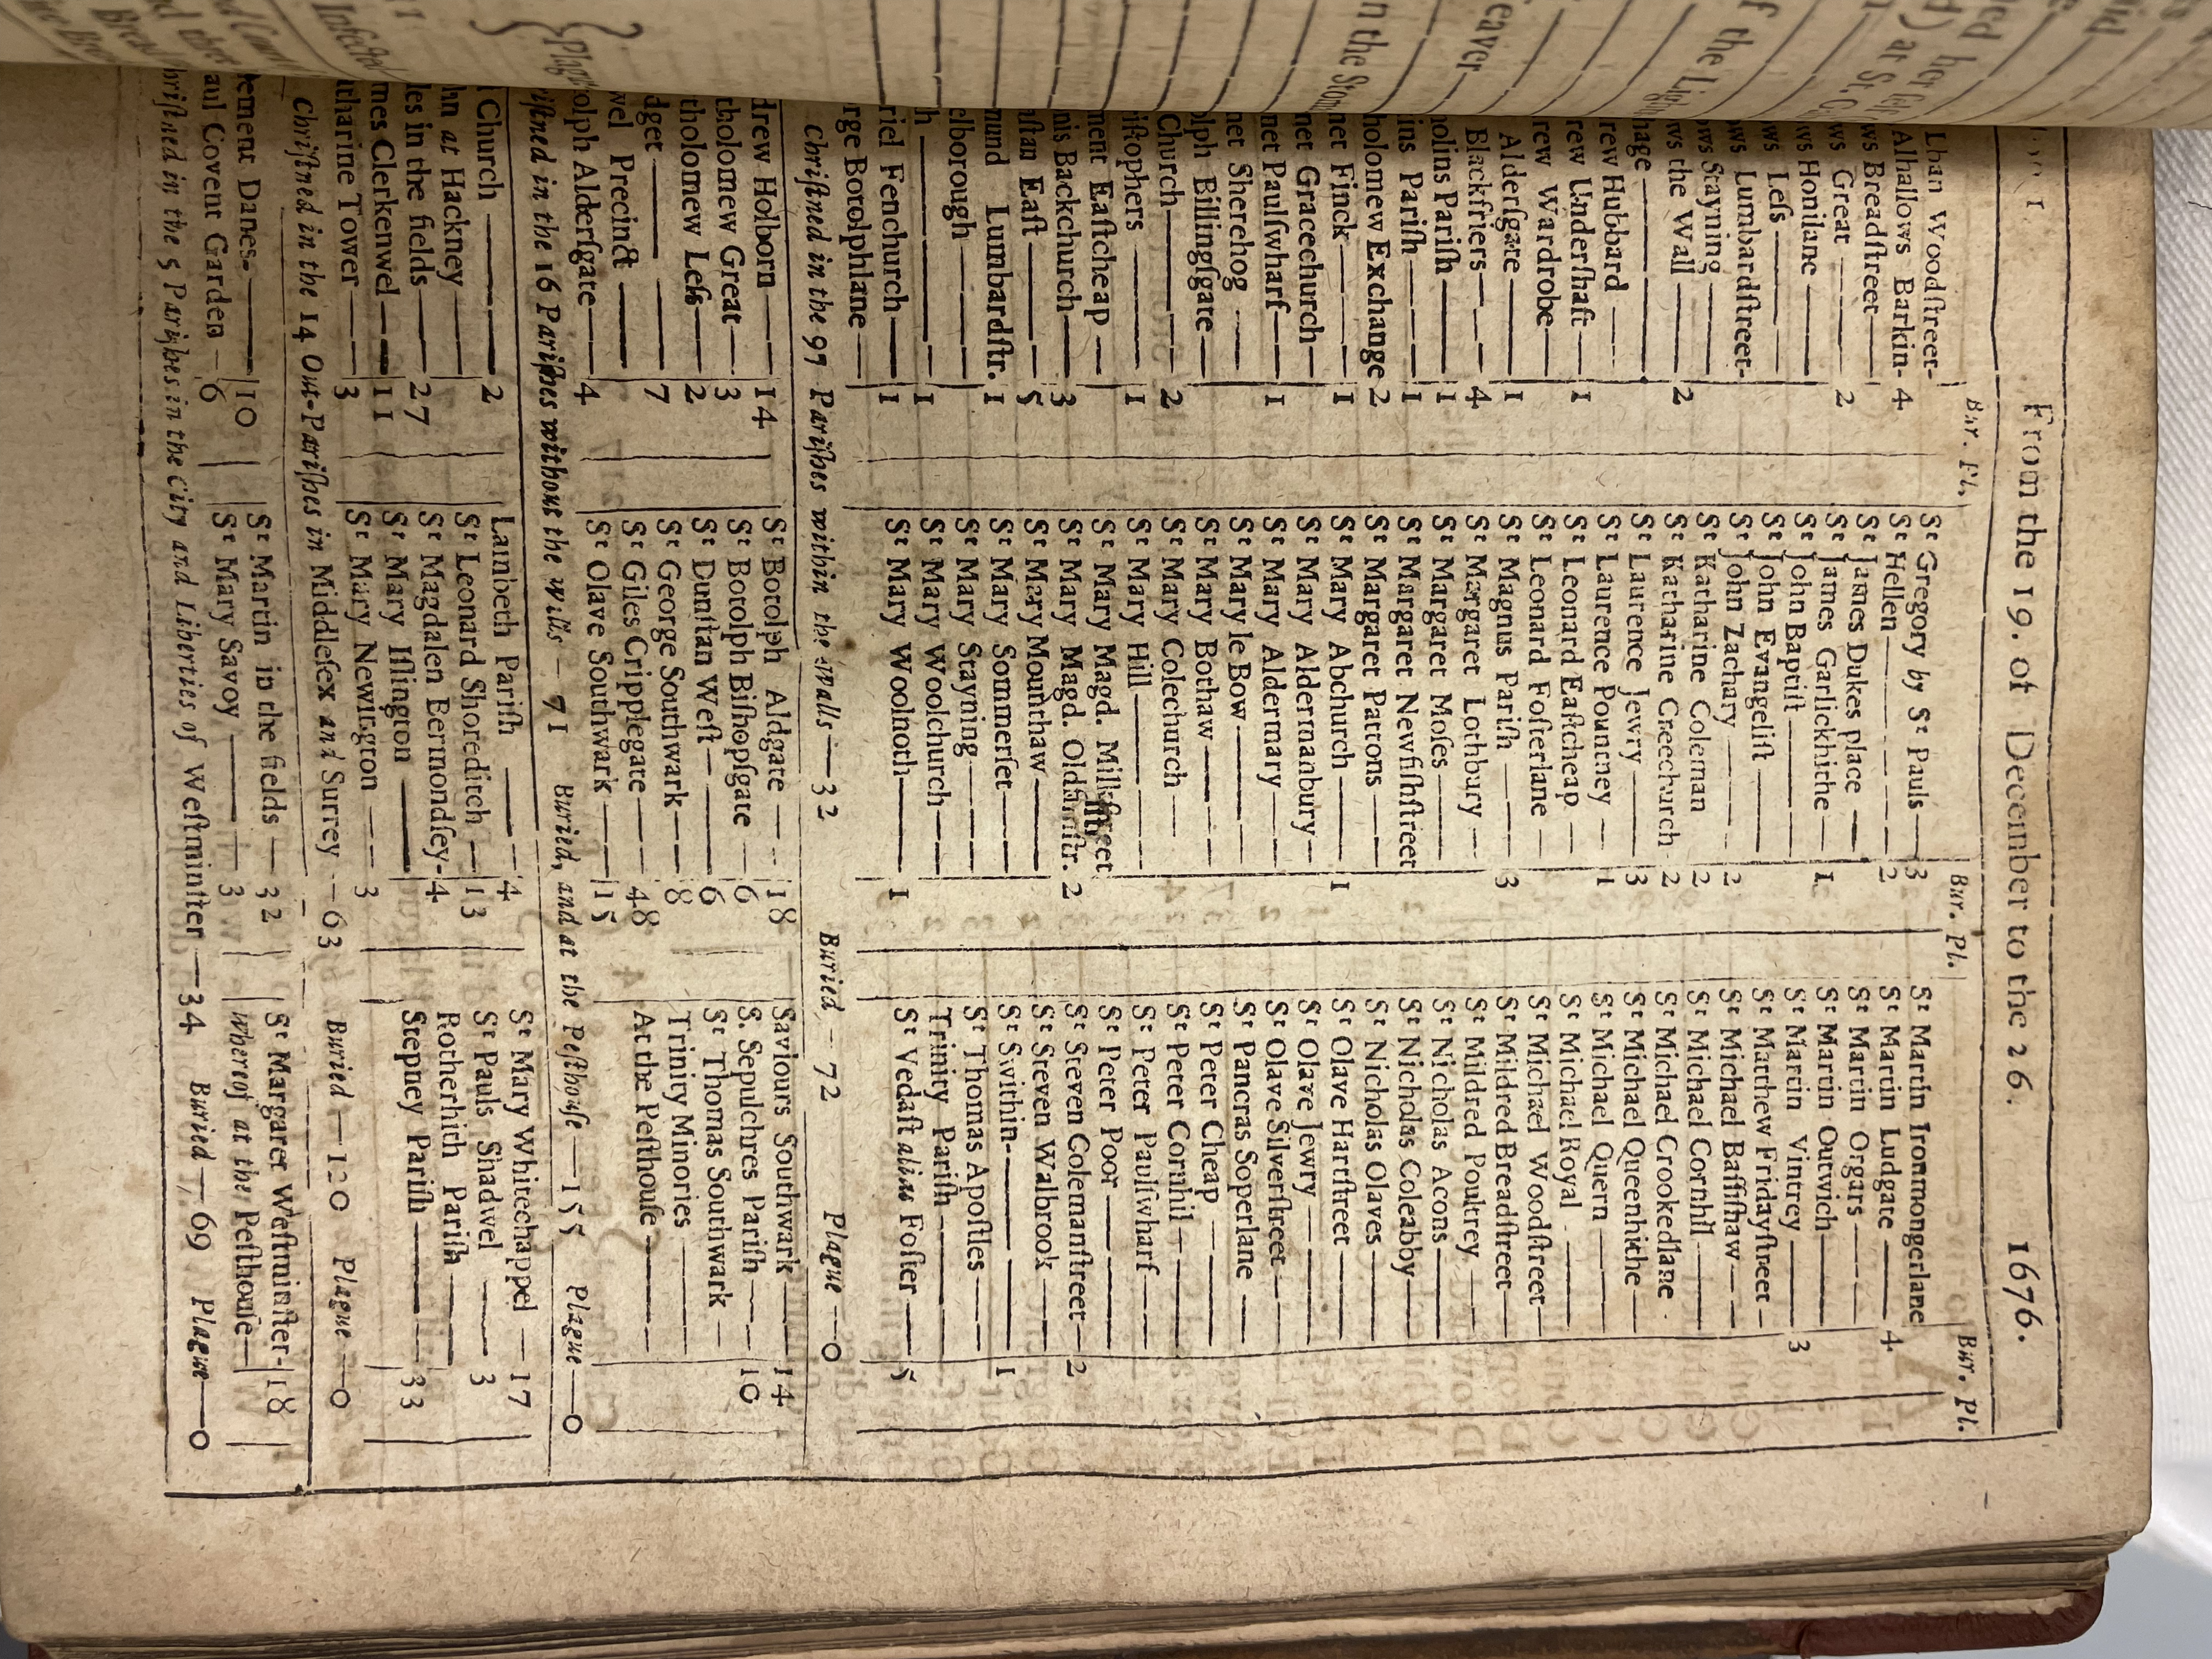 From the 19. of December to the 26. 1676.
Bur. Pl.
Lban Woodſtreet-
Alhallows Barkin- 4
ws Breadſtreet—
ws Great — 2
ws Honilane —
ws Leſs —
ws Lumbardſtreet-
ws Stayning —
ws the Wall — 2
hage —
rew Hubbard —
rew Underſhaft — 1
rew Wardrobe—
Alderſgate — 1
Blackfriers — 4
nolins Pariſh — 1
ins Pariſh — 1
holomew Exchange 2
net Finck — 1
net Gracechurch—
net Paulſwharf — 1
net Sherehog —
olph Billingſgate —
Church — 2
iſtophers — 1
ment Eaſtcheap —
nis Backchurch — 3
nſtan Eaſt — 5
mund Lumbardſtr. 1
elborough —
h — 1
riel Fenchurch — 1
rge Botolphlane —
Bur. Pl.
Sᵗ Gregory by Sᵗ Pauls — 3
Sᵗ Hellen — 2
Sᵗ James Dukes place —
Sᵗ James Garlickhithe — 1
Sᵗ John Baptiſt —
Sᵗ John Evangeliſt —
Sᵗ John Zachary — 2
Sᵗ Katharine Coleman 2
Sᵗ Katharine Creechurch 2
Sᵗ Laurence Jewry — 3
Sᵗ Laurence Pountney — 1
Sᵗ Leonard Eaſtcheap —
Sᵗ Leonard Foſterlane —
Sᵗ Magnus Pariſh — 3
Sᵗ Margaret Lothbury —
Sᵗ Margaret Moſes —
Sᵗ Margaret Newfiſhſtreet
Sᵗ Margaret Pattons —
Sᵗ Mary Abchurch — 1
Sᵗ Mary Aldermanbury—
Sᵗ Mary Aldermary —
Sᵗ Mary le Bow —
Sᵗ Mary Bothaw —
Sᵗ Mary Colechurch —
Sᵗ Mary Hill —
Sᵗ Mary Magd. Milkſtreet
Sᵗ Mary Magd. Oldfiſhſtr. 2
Sᵗ Mary Mounthaw —
Sᵗ Mary Sommerſet —
Sᵗ Mary Stayning —
Sᵗ Mary Woolchurch —
Sᵗ Mary Woolnoth — 1
Bur. Pl.
Sᵗ Martin Ironmongerlane
Sᵗ Martin Ludgate — 4
Sᵗ Martin Orgars —
Sᵗ Martin Outwich —
Sᵗ Martin Vintrey — 3
Sᵗ Matthew Fridayſtreet —
Sᵗ Michael Baſſiſhaw —
Sᵗ Michael Cornhil —
Sᵗ Michael Crookedlane
Sᵗ Michael Queenhithe —
Sᵗ Michael Quern —
Sᵗ Michael Royal —
Sᵗ Michael Woodſtreet —
Sᵗ Mildred Breadſtreet —
Sᵗ Mildred Poultrey —
Sᵗ Nicholas Acons —
Sᵗ Nicholas Coleabby —
Sᵗ Nicholas Olaves —
Sᵗ Olave Hartſtreet —
Sᵗ Olave Jewry —
Sᵗ Olave Silverſtreet —
Sᵗ Pancras Soperlane —
Sᵗ Peter Cheap —
Sᵗ Peter Cornhil —
Sᵗ Peter Paulſwharf —
Sᵗ Peter Poor —
Sᵗ Steven Colemanſtreet — 2
Sᵗ Steven Walbrook —
Sᵗ Swithin — 1
Sᵗ Thomas Apoſtles —
Trinity Pariſh —
Sᵗ Vedaſt alias Foſter — 5
Chriſtned in the 97 Pariſhes within the walls — 32 Buried — 72 Plague — 0
drew Holborn — 14
tholomew Great — 3
tholomew Leſs — 2
dget — 7
wel Precinct —
olph Alderſgate — 4
Sᵗ Botolph Aldgate — 18
Sᵗ Botolph Biſhopſgate — 6
Sᵗ Dunſtan Weſt — 6
Sᵗ George Southwark — 8
Sᵗ Giles Cripplegate — 48
Sᵗ Olave Southwark — 15
Saviours Southwark — 14
S. Sepulchres Pariſh — 10
Sᵗ Thomas Southwark —
Trinity Minories —
At the Peſthouſe —
iſtned in the 16 Pariſhes without the Walls — 71 Buried, and at the Peſthouſe — 155 Plague — 0
Church — 2
hn at Hackney —
les in the fields — 27
mes Clerkenwel — 11
tharine Tower — 3
Lambeth Pariſh — 4
Sᵗ Leonard Shoreditch — 13
Sᵗ Magdalen Bermondſey- 4
Sᵗ Mary Iſlington —
Sᵗ Mary Newington — 3
Sᵗ Mary Whitechappel — 17
Sᵗ Pauls Shadwel — 3
Rotherhith Pariſh —
Stepney Pariſh — 33
Chriſtned in the 14 Out-Pariſhes in Middleſex and Surrey — 63 Buried — 120 Plague — 0
ement Danes — 10
aul Covent Garden — 6
Sᵗ Martin in the fields — 32
Sᵗ Mary Savoy — 3
Sᵗ Margaret Weſtminſter- 18
Whereof at the Peſthouſe —
hriſtned in the 5 Pariſhes in the City and Liberties of Weſtminſter — 34 Buried — 69 Plague — 0